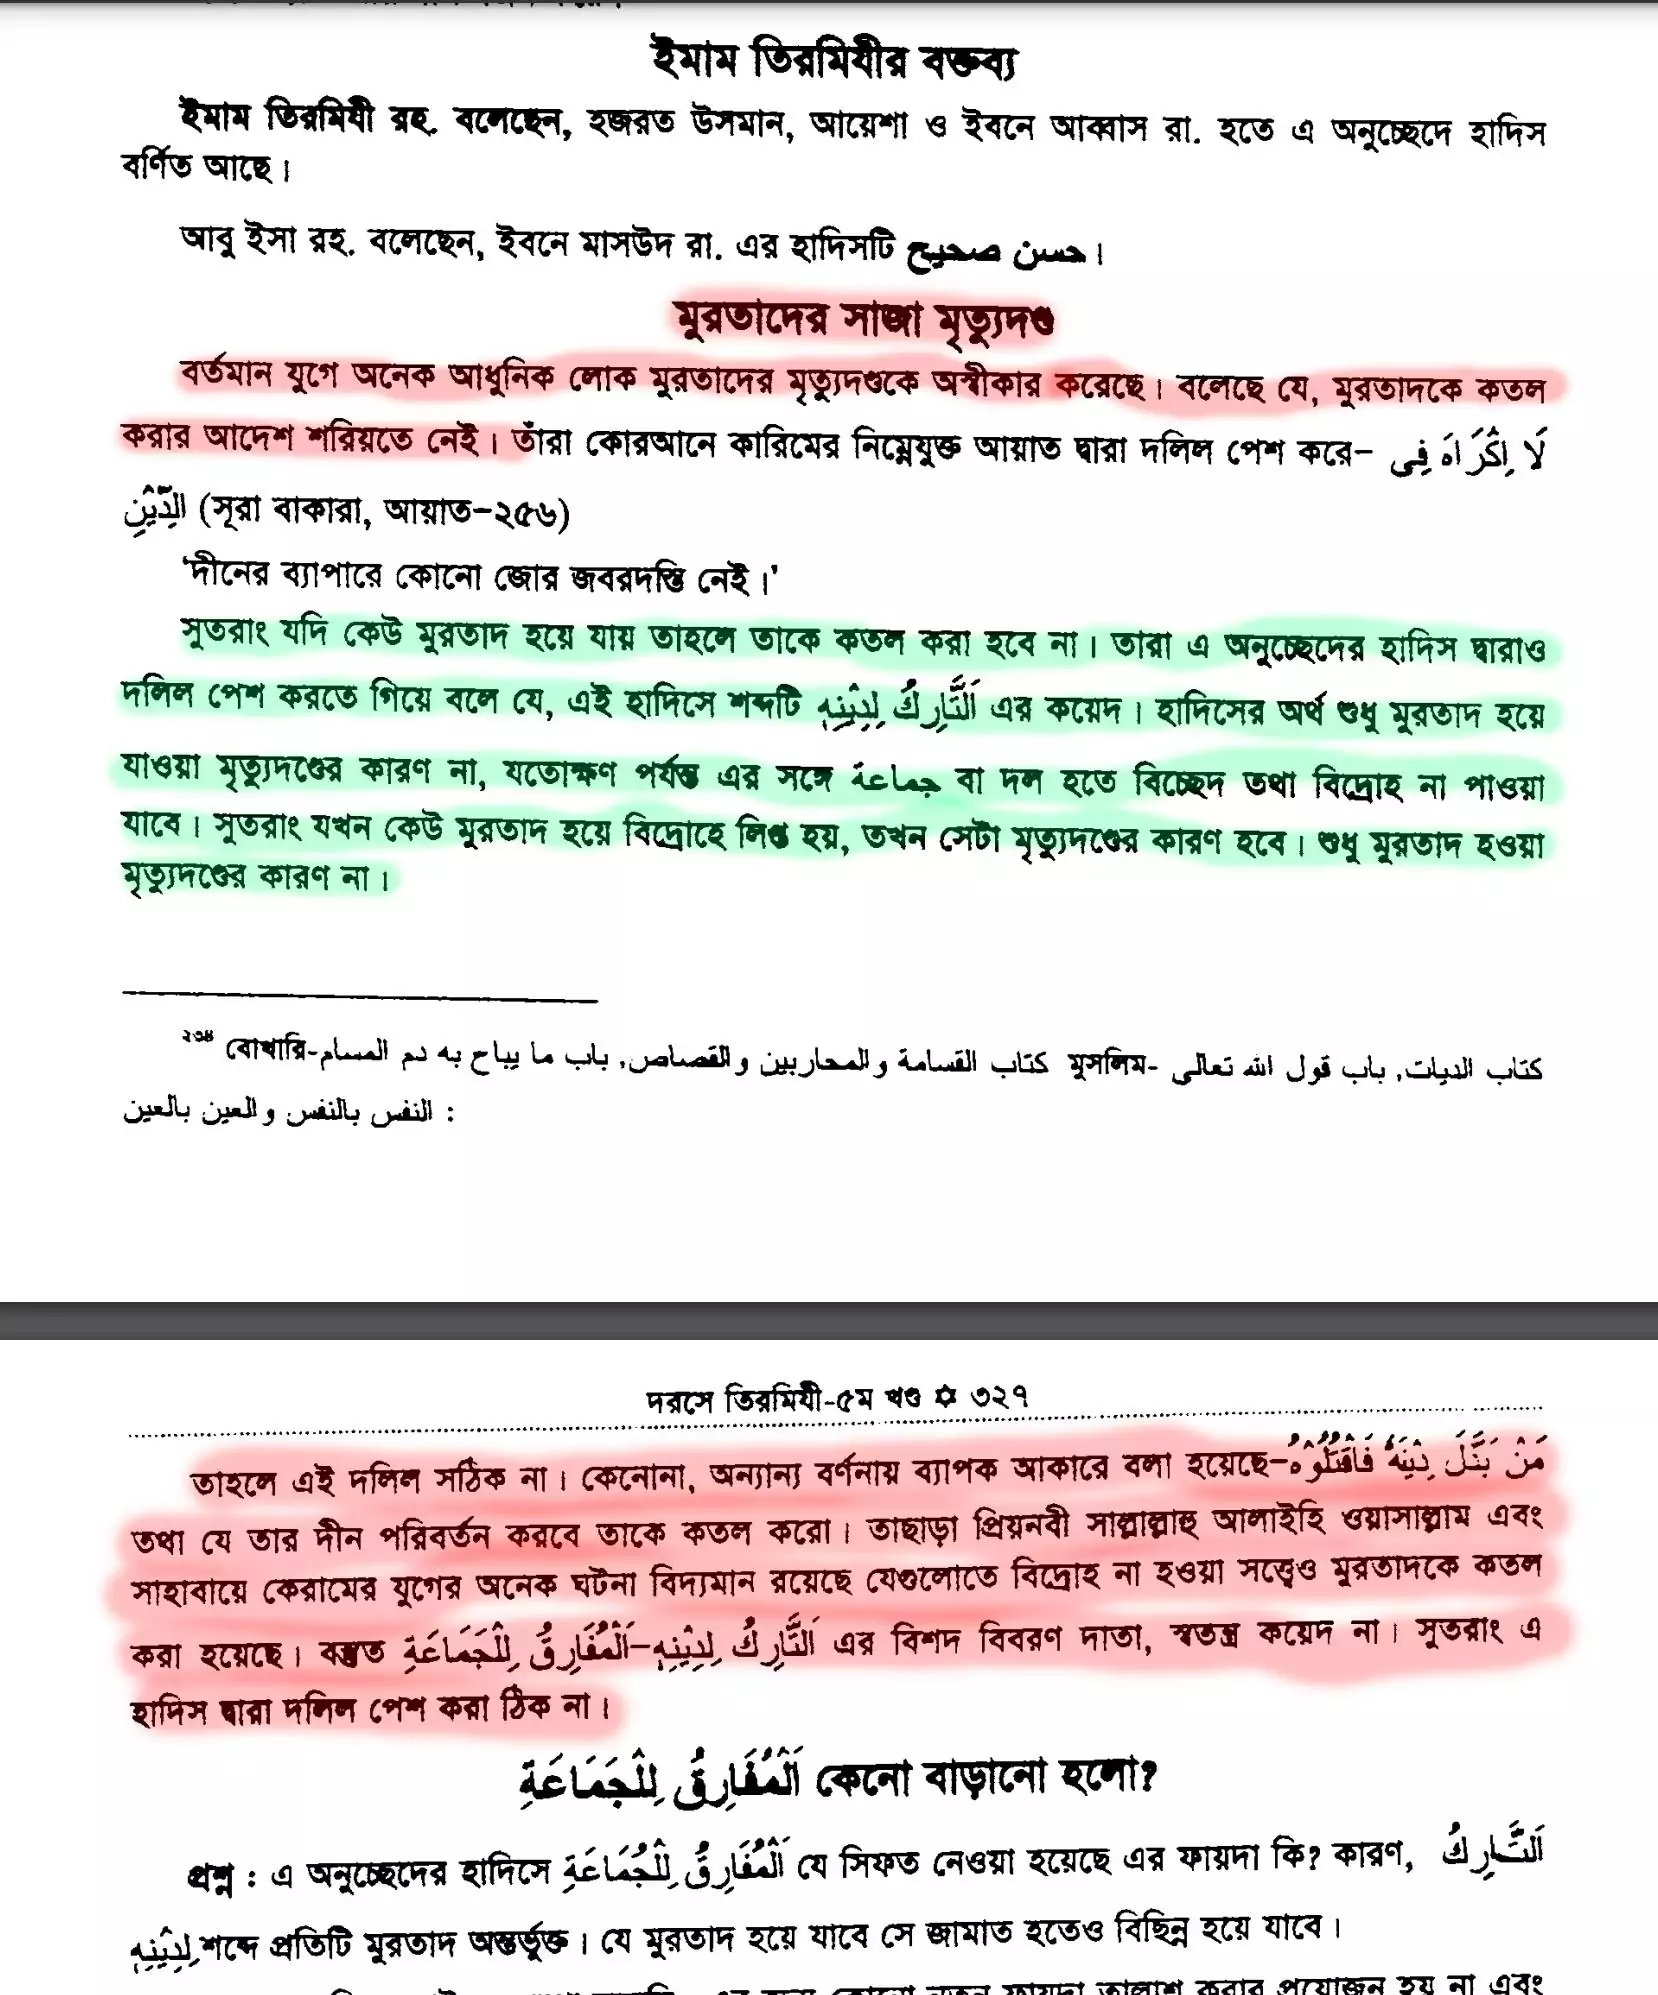 ইমাম তিরমিযীর বক্তব্য
ইমাম তিরমিযী রহ. বলেছেন, হজরত উসমান, আয়েশা ও ইবনে আব্বাস রা. হতে এ অনুচ্ছেদে হাদিস
বর্ণিত আছে।
আবু ইসা রহ. বলেছেন, ইবনে মাসউদ রা. এর হাদিসটি حسن صحيح।
মুরতাদের সাজা মৃত্যুদণ্ড
বর্তমান যুগে অনেক আধুনিক লোক মুরতাদের মৃত্যুদণ্ডকে অস্বীকার করেছে। বলেছে যে, মুরতাদকে কতল
করার আদেশ শরিয়তে নেই। তাঁরা কোরআনে কারিমের নিম্নেযুক্ত আয়াত দ্বারা দলিল পেশ করে– لَا اِكْرَاهَ فِى
الدِّيْنِ (সূরা বাকারা, আয়াত–২৫৬)
'দীনের ব্যাপারে কোনো জোর জবরদস্তি নেই।'
সুতরাং যদি কেউ মুরতাদ হয়ে যায় তাহলে তাকে কতল করা হবে না। তারা এ অনুচ্ছেদের হাদিস দ্বারাও
দলিল পেশ করতে গিয়ে বলে যে, এই হাদিসে শব্দটি اَلتَّارِكُ لِدِيْنِهٖ এর কয়েদ। হাদিসের অর্থ শুধু মুরতাদ হয়ে
যাওয়া মৃত্যুদণ্ডের কারণ না, যতোক্ষণ পর্যন্ত এর সঙ্গে جماعة বা দল হতে বিচ্ছেদ তথা বিদ্রোহ না পাওয়া
যাবে। সুতরাং যখন কেউ মুরতাদ হয়ে বিদ্রোহে লিপ্ত হয়, তখন সেটা মৃত্যুদণ্ডের কারণ হবে। শুধু মুরতাদ হওয়া
মৃত্যুদণ্ডের কারণ না।
২৩৪ বোখারি-كتاب الديات, باب قول الله تعالى মুসলিম- كتاب القسامة والمحاربين والقصاص, باب ما يباح به دم المسلم
: النفس بالنفس والعين بالعين
দরসে তিরমিযী-৫ম খণ্ড ✡ ৩২৭
তাহলে এই দলিল সঠিক না। কেনোনা, অন্যান্য বর্ণনায় ব্যাপক আকারে বলা হয়েছে–مَنْ بَدَّلَ دِيْنَهٗ فَاقْتُلُوْهُ
তথা যে তার দীন পরিবর্তন করবে তাকে কতল করো। তাছাড়া প্রিয়নবী সাল্লাল্লাহু আলাইহি ওয়াসাল্লাম এবং
সাহাবায়ে কেরামের যুগের অনেক ঘটনা বিদ্যমান রয়েছে যেগুলোতে বিদ্রোহ না হওয়া সত্ত্বেও মুরতাদকে কতল
করা হয়েছে। বস্তুত اَلتَّارِكُ لِدِيْنِهٖ–اَلْمُفَارِقُ لِلْجَمَاعَةِ এর বিশদ বিবরণ দাতা, স্বতন্ত্র কয়েদ না। সুতরাং এ
হাদিস দ্বারা দলিল পেশ করা ঠিক না।
اَلْمُفَارِقُ لِلْجَمَاعَةِ কেনো বাড়ানো হলো?
প্রশ্ন : এ অনুচ্ছেদের হাদিসে اَلْمُفَارِقُ لِلْجُمَاعَةِ যে সিফত নেওয়া হয়েছে এর ফায়দা কি? কারণ, اَلتَّارِكُ
لِدِيْنِهٖ শব্দে প্রতিটি মুরতাদ অন্তর্ভুক্ত। যে মুরতাদ হয়ে যাবে সে জামাত হতেও বিছিন্ন হয়ে যাবে।
কোনো নতুন ফায়দা তালাশ করার প্রয়োজন হয় না এবং